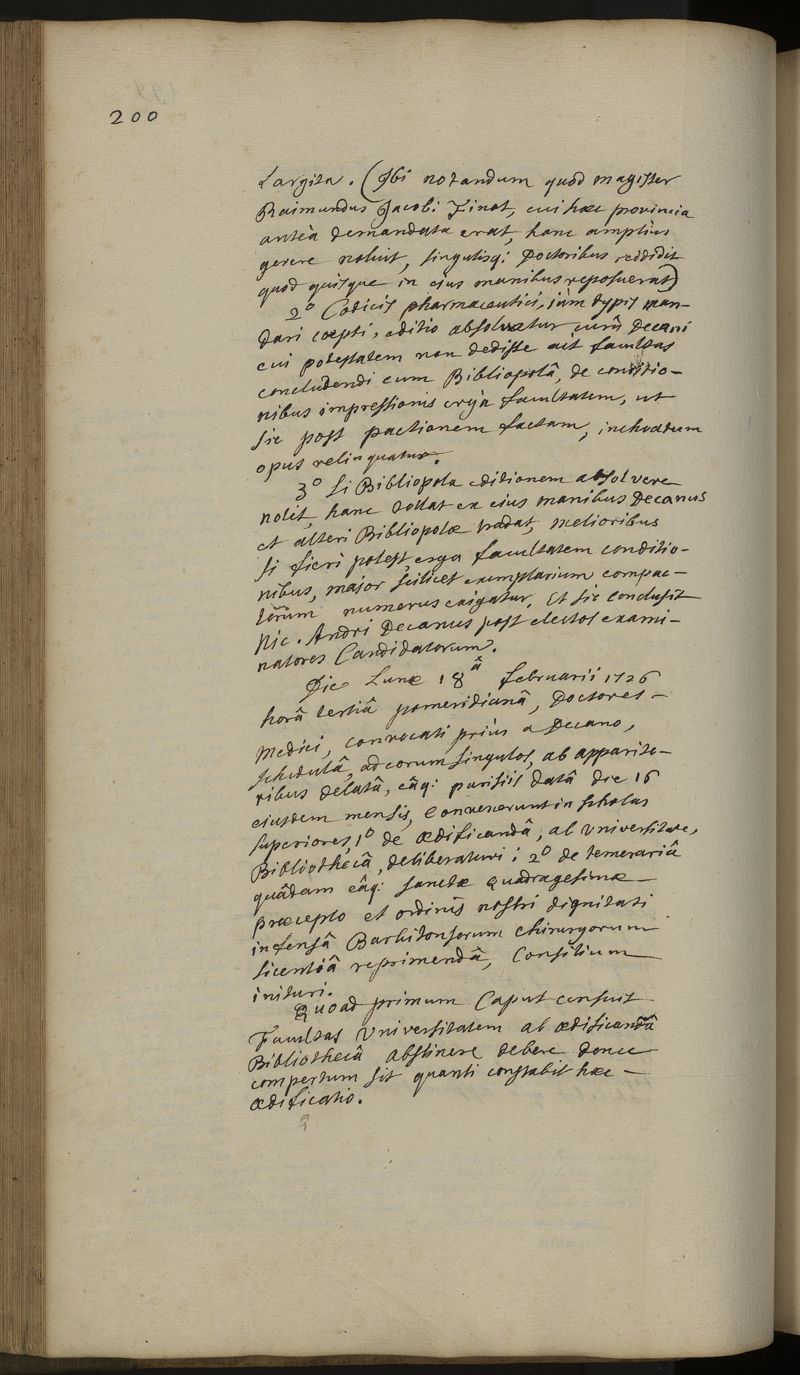 200
Largita. (Ibi notandum quod magister
Raimundus Jacobi Finot, cui hæc provincia
anteà demandata erat, hanc ampliùs
gerere noluit, singulisq; Doctoribus reddidit
quod quisque in eius manibus reposuerat)
2º Codicis pharmaceutici, iàm typis man-
dari cœpti, editio absolvatur curâ Decani
cui potestatem non dedisse ait facultas
concludendi cum Bibliopolâ, de conditio-
nibus impressionis ergà facultatem, ut
sic post pactionem factam, inchoatum
opus relinquatur.
3º Si Bibliopola editionem absolvere
nolit, hanc tollat ex eius manibus Decanus
et alteri Bibliopolæ tradat, melioribus
si fieri potest, erga facultatem conditio-
nibus, major scilicet exemplarium compac-
torum numerus exigatur, Et sic conclusit
Nic. Andri Decanus post electos exami-
natores Candidatorum.
Die Lunæ 18ª februarii 1726
horâ tertiâ pomeridianâ, Doctores-
Medici, convocati priùs a Decano,
schedulâ, ad eorum singulos, ab apparito-
ribus delatâ, eâq; parisiis datâ die 16
eiusdem mensis, Convenerunt in scholas
superiores, 1º de ædificandâ, ab Universitate,
Bibliothecâ, deliberaturi; 2º de temerariâ
quâdam eâq; sanctæ Quadragesimæ-
præcepto et ordinis nostri dignitati
infensâ Barbitonsorum chirurgorum
licentiâ reprimendâ, Consilium
inituri.
Quoad primum Caput censuit
Facultas Universitatem ab ædificandâ
Bibliothecâ abstinere debere donec
compertum sit quanti constabit hæc-
ædificatio.